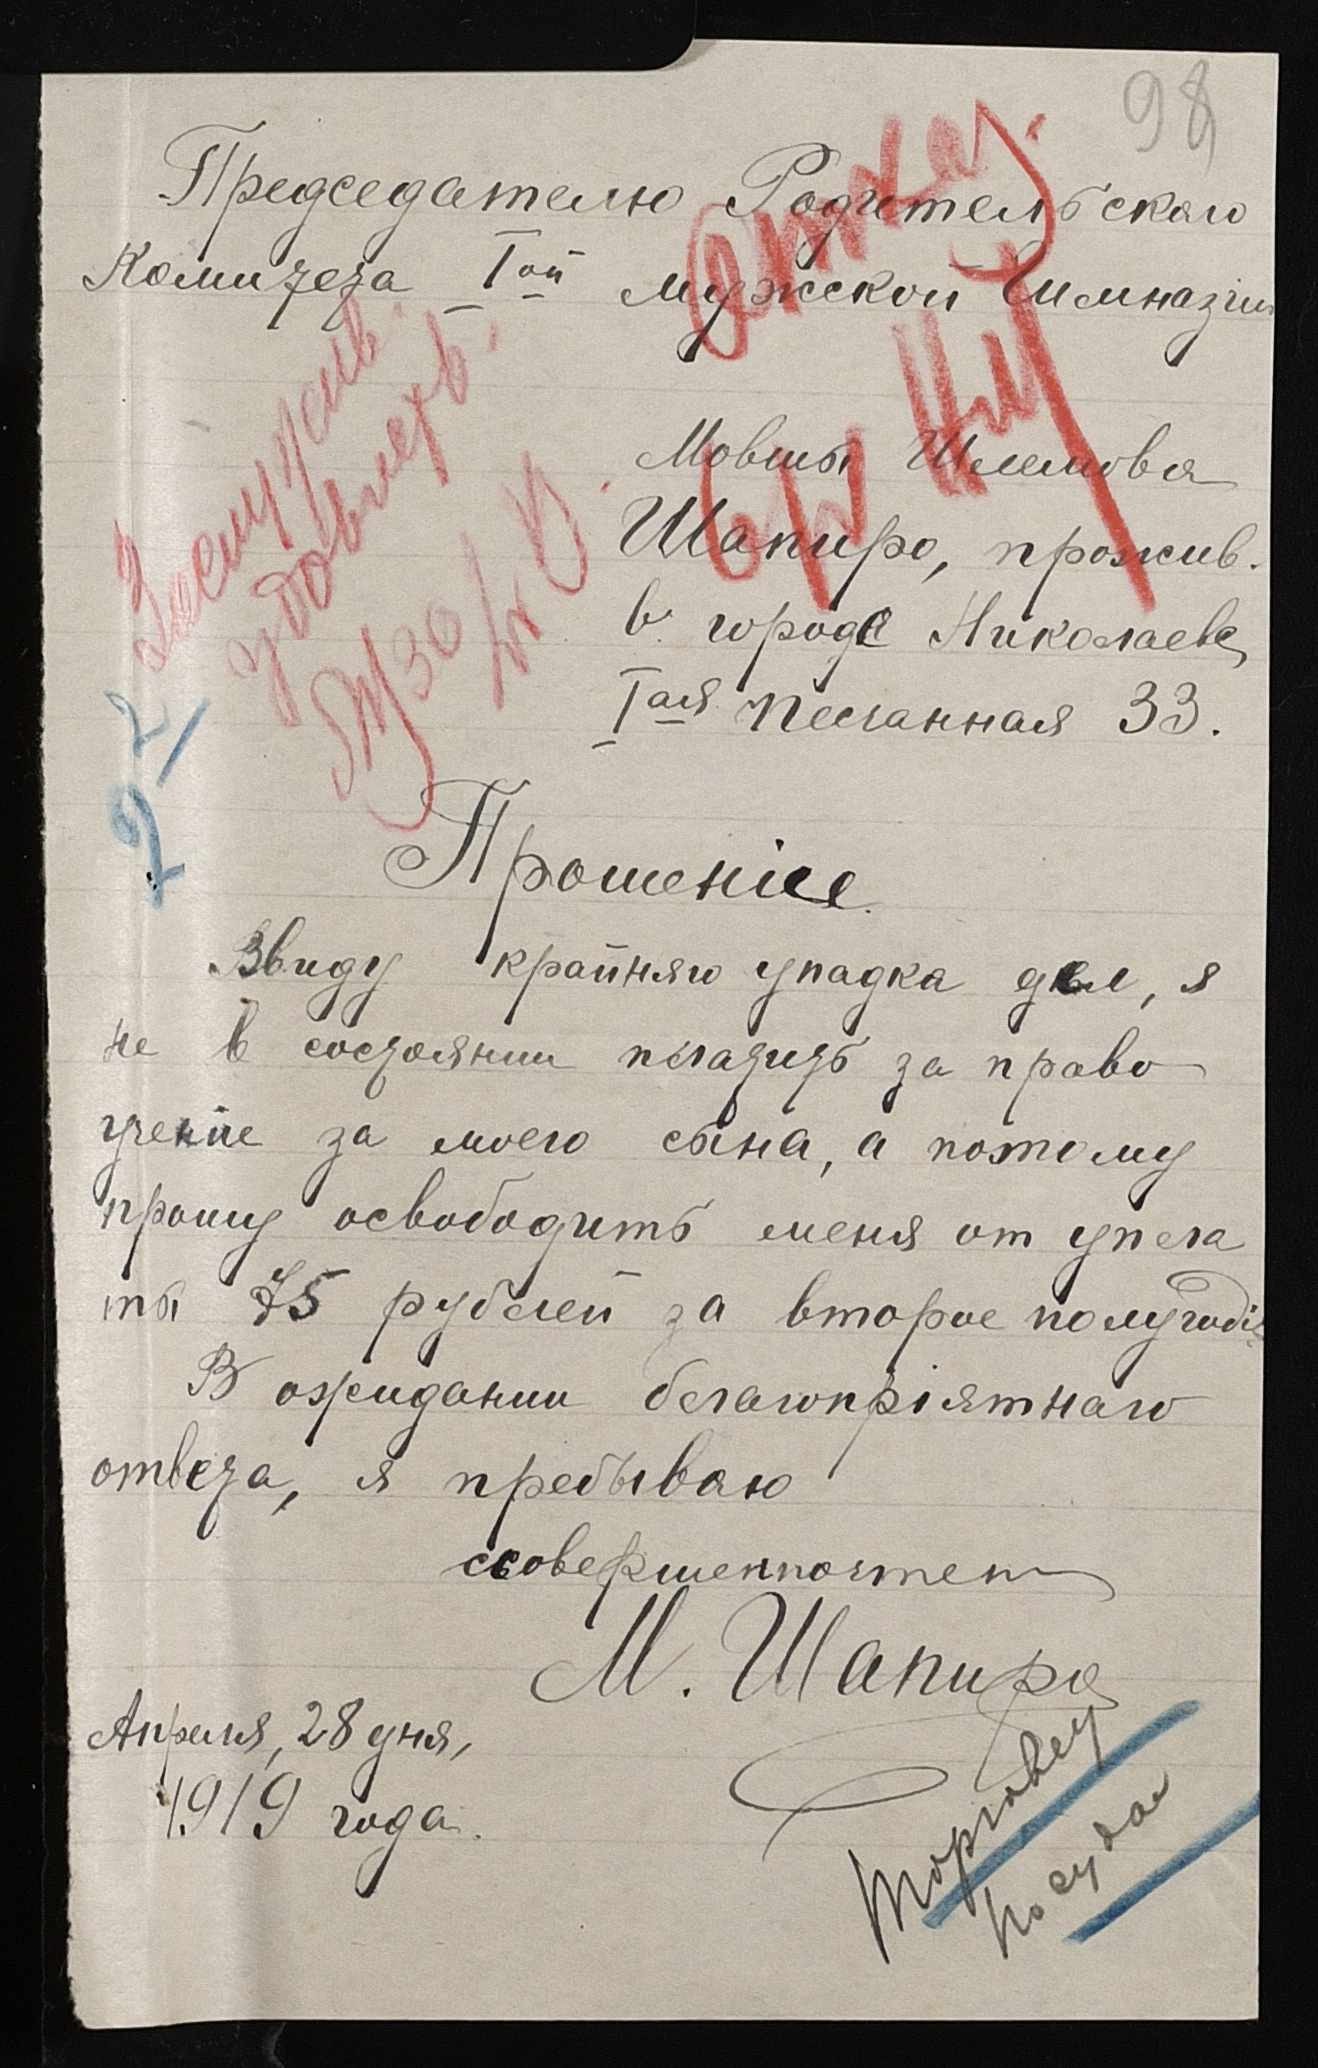 98
Председателю Родительскаго
Комитета Iой мужской Гимназіи
Отказ.
Заслужив.
удовлетв.
Мовши Шлемова
Шапиро, прожив.
в городе Николаеве,
Iая Песчанная 33.
92
Прошеніе
Ввиду крайняго упадка дел, я
не в состоянии платить за право
ученіе за моего сына, а потому
прошу освободить меня от упла
ты 75 рублей за второе полугодіе
В ожидании благопріятнаго
ответа, я пребываю
совершенпочтен
М. Шапиро
Апреля, 28 дня,
1919 года.
торговец
посудой